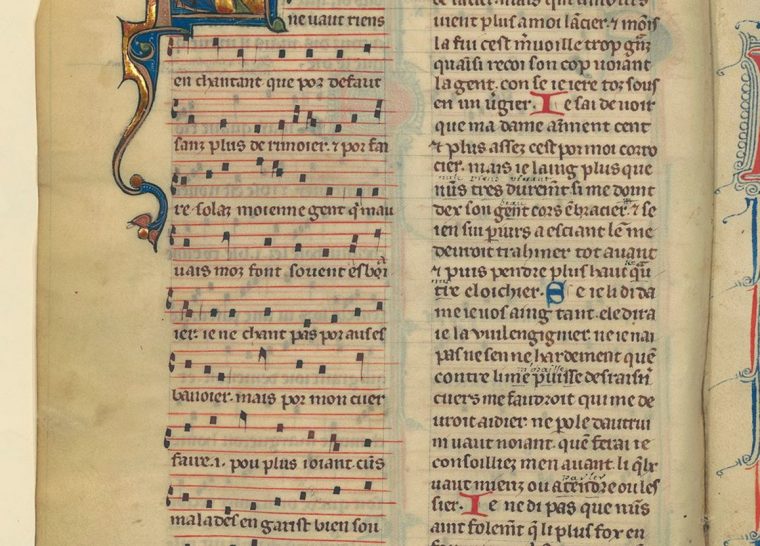 ne vaut riens
en chantant que por defaut
sanz plus de rimoier. ⁊ por fai
re solaz moienne gent q̃ mau
uais moz font souent es bãi
ier. ie ne chant pas por aus es
banoier. mais por mon cuer
faire .i. pou plus ioiant. cũs
malades en garist bien sou
uient plus a moi lãcier. ⁊ mõis
la fui cest mũoille trop gñz
quãsi recoi son cop uoiant
la gent. con se ieiere toz sous
en un ũgier. Ie sai de uoir
que ma dame aiment cent
⁊ plus assez cest por moi corro
cier. mais ie laing plus que
nũs tres durem̃t si me doint
dex son gent cors ẽbracier. ⁊ se
ien sui piurs a esciant len me
deuroit trahiner tot auant
⁊ puis pendre plus haut qu
tre cloichier. Se ie li di da
me ie uos aing tant. ele dira
ie la uuil engignier. ne ie nai
pas ne sen ne hardement quẽ
contre li me puisse desraisñ
cuers me faudroit qui me de
uroit aidier. ne pole dautrui
m uaut noiant. quẽ ferai ie
consoilliez men auant. li q̃lx
uaut mieuz ou atendre ou les
sier. Ie ne di pas que nũs
aint folem̃t q̃ li plus fox en